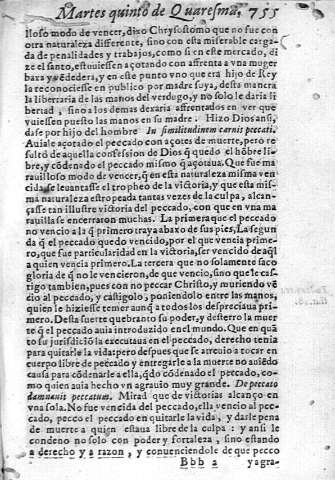 Martes quinto de Quaresma. 755
lloso modo de vencer, dixo Chrysostomo que no fue con
otra naturaleza differente, sino con esta miserable carga-
da de penalidades y trabajos, como si en este mercado, di
ze el santo, estuuiessen açotando con afrenta a vna muger
baxa y cõdedera, y en este punto vno que era hijo de Rey
la reconociesse en publico por madre suya, desta manera
la libertaria de las manos del verdugo, y no solo le daria li
bertad, sino a los demas dexaria affrentados en ver que
vuiessen puesto las manos en su madre. Hizo Dios ansi,
dase por hijo del hombre In similitudinem carnis peccati.
Auiale açotado el peccado con açotes de muerte, pero re
sultò de aquella confession de Dios q̃ quedo el hõbre li-
bre, y cõdenado el peccado mismo q̃ açotaua. Que fue ma
rauilloso modo de vencer, q̃ en esta naturaleza misma ven
cida se leuantasse el tropheo de la victoria, y que esta mis-
ma naturaleza estropeada tantas vezes de la culpa, alcan-
çasse tan illustre victoria del peccado, con que en vna ma
rauilla se encerraron muchas. La primera que el peccado
no vencio a la q̃ primero traya abaxo de sus pies, La segun
da q̃ el peccado quedo vencido, por el que vencia prime-
ro, que fue particularidad en la victoria, ser vencido de aq̃l
a quien vencia primero. La tercera que no solamente saco
gloria de q̃ no le vencieron, de que vencio, sino que le cas-
tigo tambien, pues con no peccar Christo, y muriendo vẽ
cio al peccado, y castigolo, poniendolo entre las manos,
quien le hiziesse temer aunq̃ a todos los despreciaua pri-
mero. Desta suerte quebranto su poder, y desterro la muer
te q̃ el peccado auia introduzido en el mundo. Que en quã
to su jurisdiciõ la executaua en el peccado, derecho tenia
para quitarle la vida: pero despues que se atreuio a tocar en
cuerpo libre de peccado y entregarle a la muerte no auiẽdo
causa para cõdenarle a ella, q̃do cõdenado el peccado, co-
mo quien auia hecho vn agrauio muy grande. De peccato
damnauit peccatum. Mirad que de victorias alcanço en
vna sola. No fue vencida del peccado, ella vencio al pec-
cado, pecco el peccado en quitarle la vida, y darle pena
de muerte a quien estaua libre de la culpa: y ansi le
condeno no solo con poder y fortaleza, sino estando
a derecho y a razon, y conuenciendole de que pecco
Bbb 2 yagra-